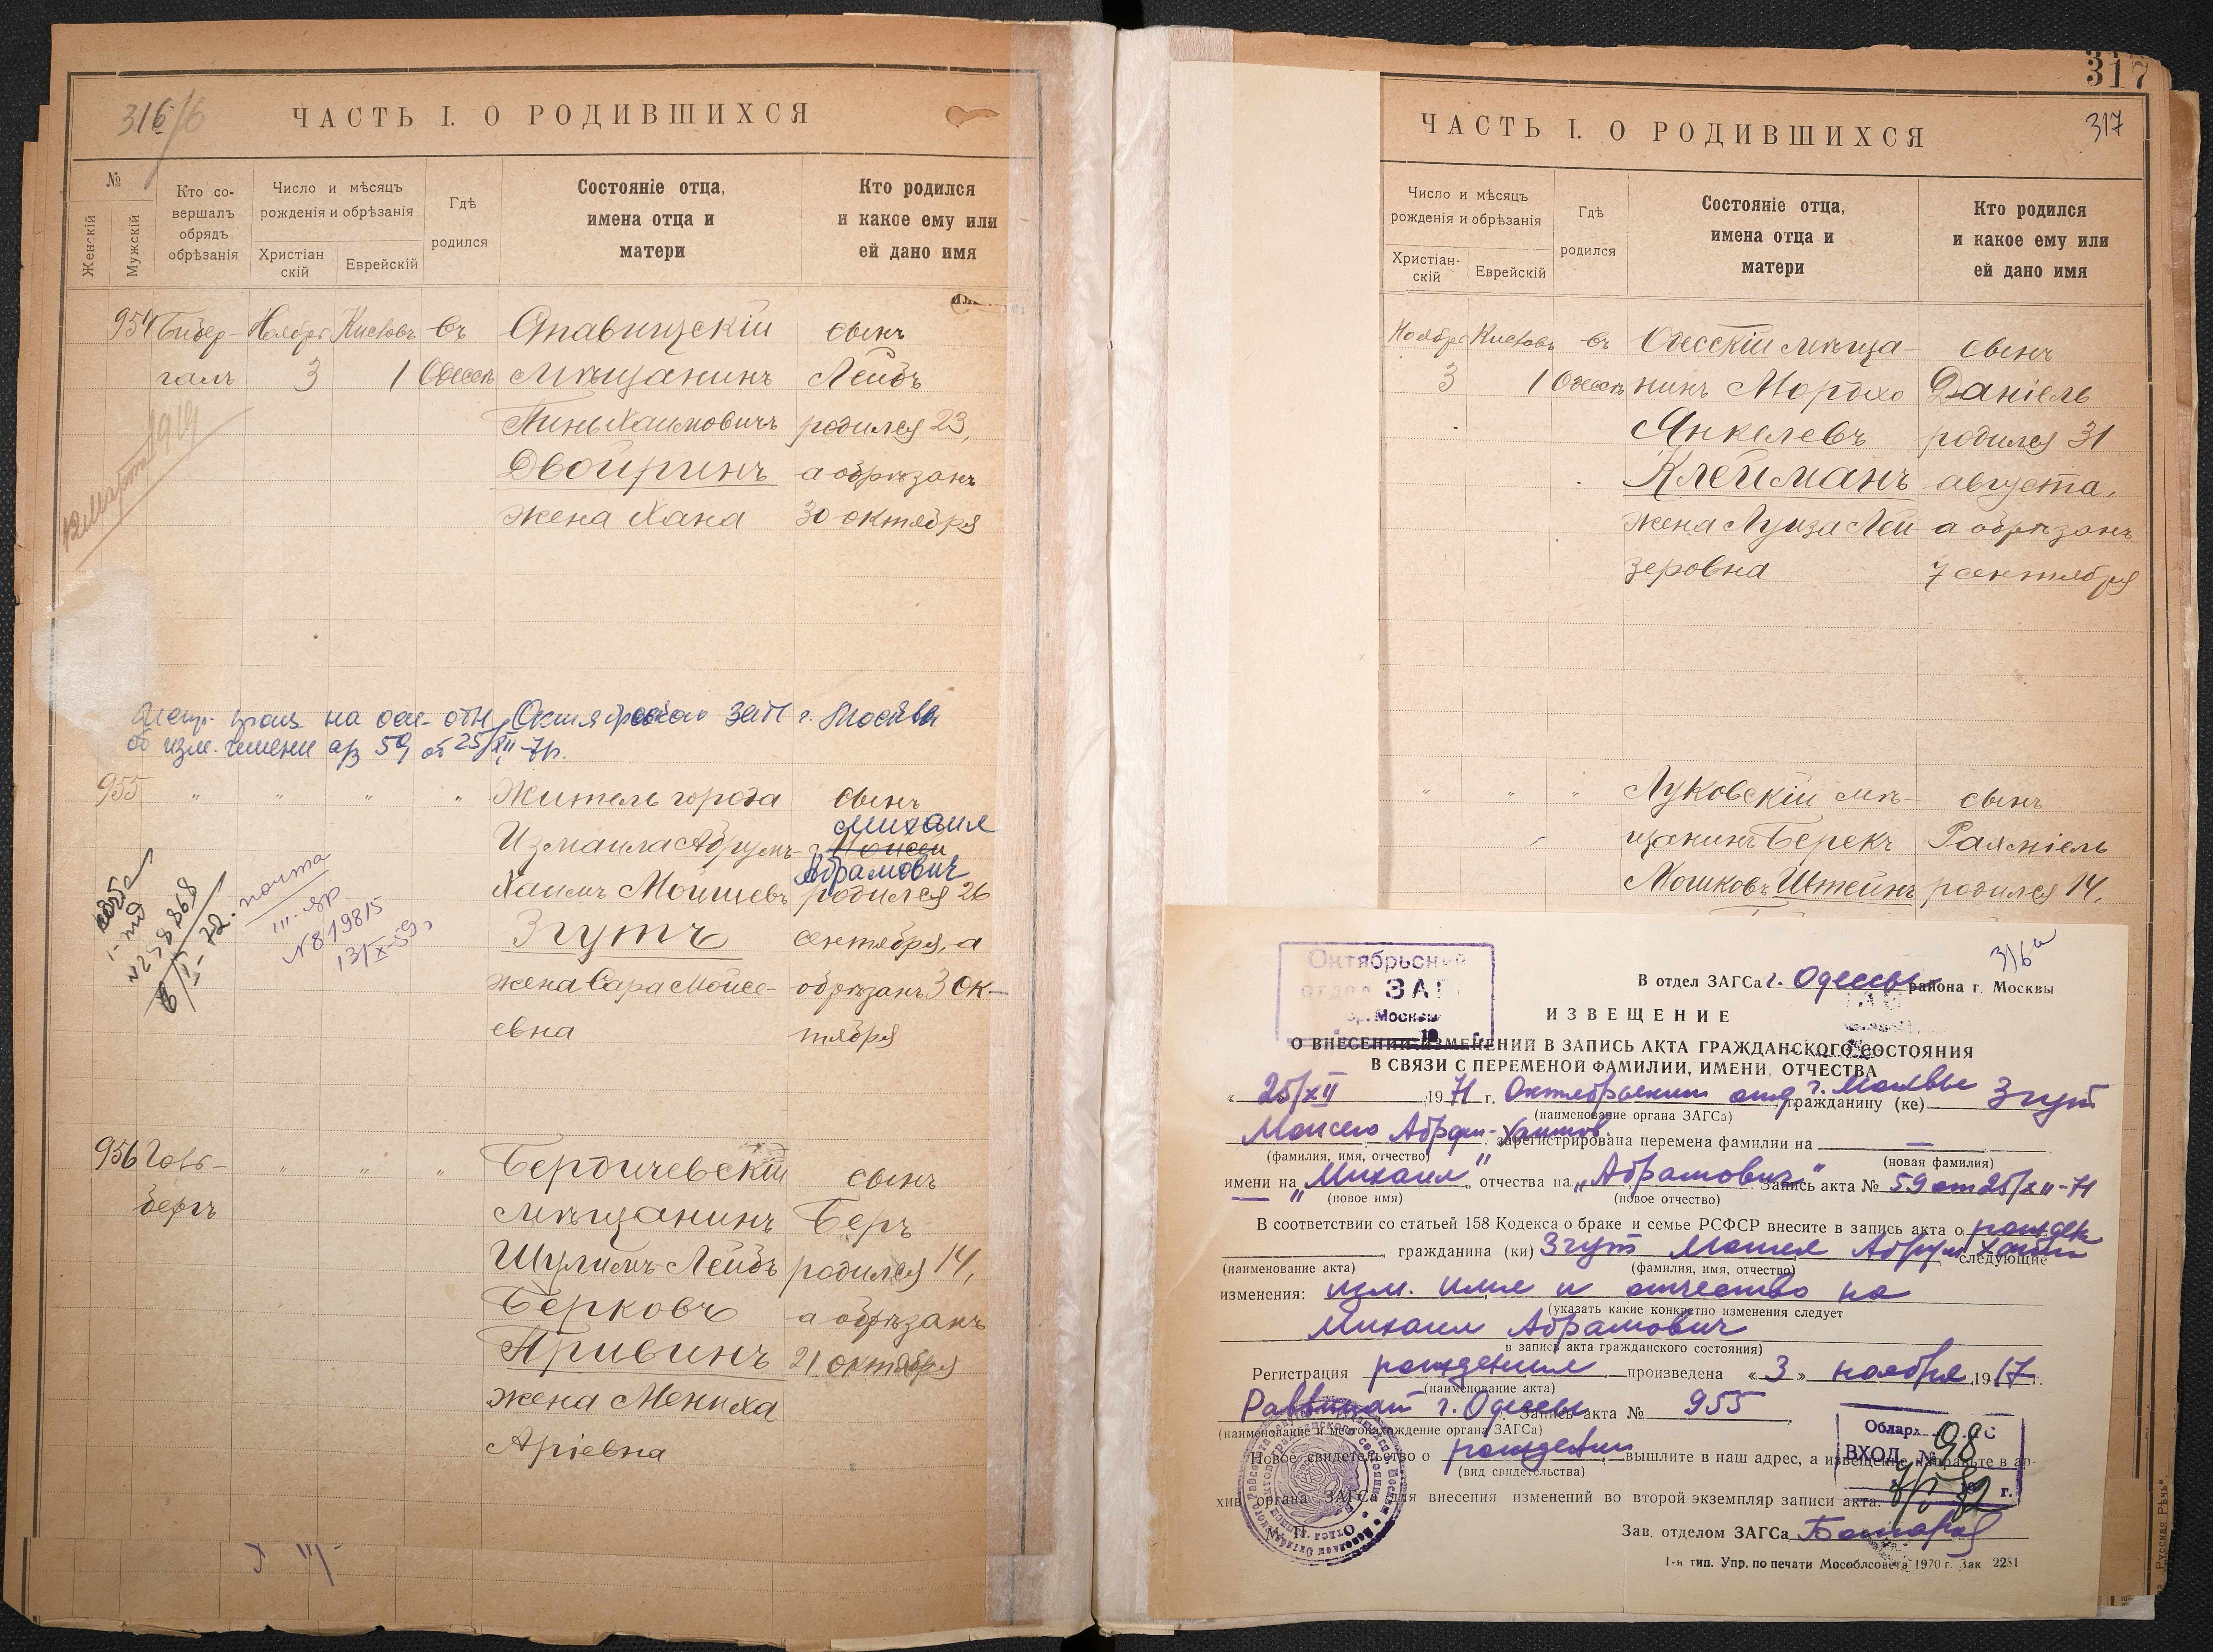 316/6
ЧАСТЬ I. О РОДИВШИХСЯ
№
Женскій
Мужскій
Кто со-
вершалъ
обрядъ
обрѣзанія
Число и мѣсяцъ
рожденія и обрѣзанія
Христіан
скій
Еврейскій
Гдѣ
родился
Состояніе отца,
имена отца и
матери
Кто родился
и какое ему или
ей дано имя
954 Ноября Кислевъ въ сынъ
3 1 Одессѣ мѣщанинъ Лейбъ
родился 23,
Двойринъ а обрѣзанъ
жена Хана 30 октября
12 марта 1919
на осн. отн. Октябрьского ЗАГС г. Москвы
59 от 25/XII-71г.
955 " " " " Житель города сынъ
Михаил
Измаила Абрумъ- Моисей
Абрамович
Хаимъ Мойшевъ родился 26
Згутъ сентября, а
жена Сара Мойсе- обрѣзанъ 3 ок-
евна тября
почта
III-ЯР
№819815
13/X-59г
956 Голь- " " " Бердичевскій сынъ
бергъ мѣщанинъ Беръ
Шулимъ-Лейбъ родился 14,
Берковъ а обрѣзанъ
Привинъ 21 октября
жена Мениха
Аріевна
317
317
ЧАСТЬ I. О РОДИВШИХСЯ
Число и мѣсяцъ
рожденія и обрѣзанія
Христіан-
скій
Еврейскій
Гдѣ
родился
Состояніе отца,
имена отца и
матери
Кто родился
и какое ему или
ей дано имя
Ноября Кислевъ въ Одесскій мѣща- сынъ
3 1 Одессѣ нинъ Мордхо Даніель
Янкелевъ родился 31
Клейманъ августа,
жена Луиза Лей- а обрѣзанъ
зеровна 7 сентября
" " " Луковскій мѣ- сынъ
щанинъ Берекъ Рахміель
Мошковъ Штейнъ родился 14,
316а
Октябрьский
отдел ЗАГС
гор. Москвы
В отдел ЗАГСа г. Одессы района г. Москвы
ИЗВЕЩЕНИЕ
О ВНЕСЕНИИ ИЗМЕНЕНИЙ В ЗАПИСЬ АКТА ГРАЖДАНСКОГО СОСТОЯНИЯ
В СВЯЗИ С ПЕРЕМЕНОЙ ФАМИЛИИ, ИМЕНИ, ОТЧЕСТВА
« 25/XII 1971 г. Октябрьским отд. г. Москвы гражданину (ке) Згут
(наименование органа ЗАГСа)
Моисею Абрам-Хаимов. зарегистрирована перемена фамилии на —
(фамилия, имя, отчество)
(новая фамилия)
имени на „Михаил" отчества на „Абрамович" Запись акта № 59 от 25/XII-71
(новое имя) (новое отчество)
В соответствии со статьей 158 Кодекса о браке и семье РСФСР внесите в запись акта о рожден
гражданина (ки) Згут Моисея Абрум Хаимова следующие
(наименование акта) (фамилия, имя, отчество)
изменения: изм. имя и отчество на
(указать какие конкретно изменения следует
Михаил Абрамович
в запись акта гражданского состояния)
Регистрация рождения произведена «3» ноября 1917 г.
(наименование акта)
Раввинат г. Одессы Запись акта № 955
(наименование и местонахождение органа ЗАГСа)
Новое свидетельство о рождении вышлите в наш адрес, а извещение направьте в ар-
(вид свидетельства)
хив органа ЗАГСа для внесения изменений во второй экземпляр записи акта.
ВХОД. № 98
М. П.
Зав. отделом ЗАГСа
1-я тип. Упр. по печати Мособлсовета 1970 г. Зак 2231